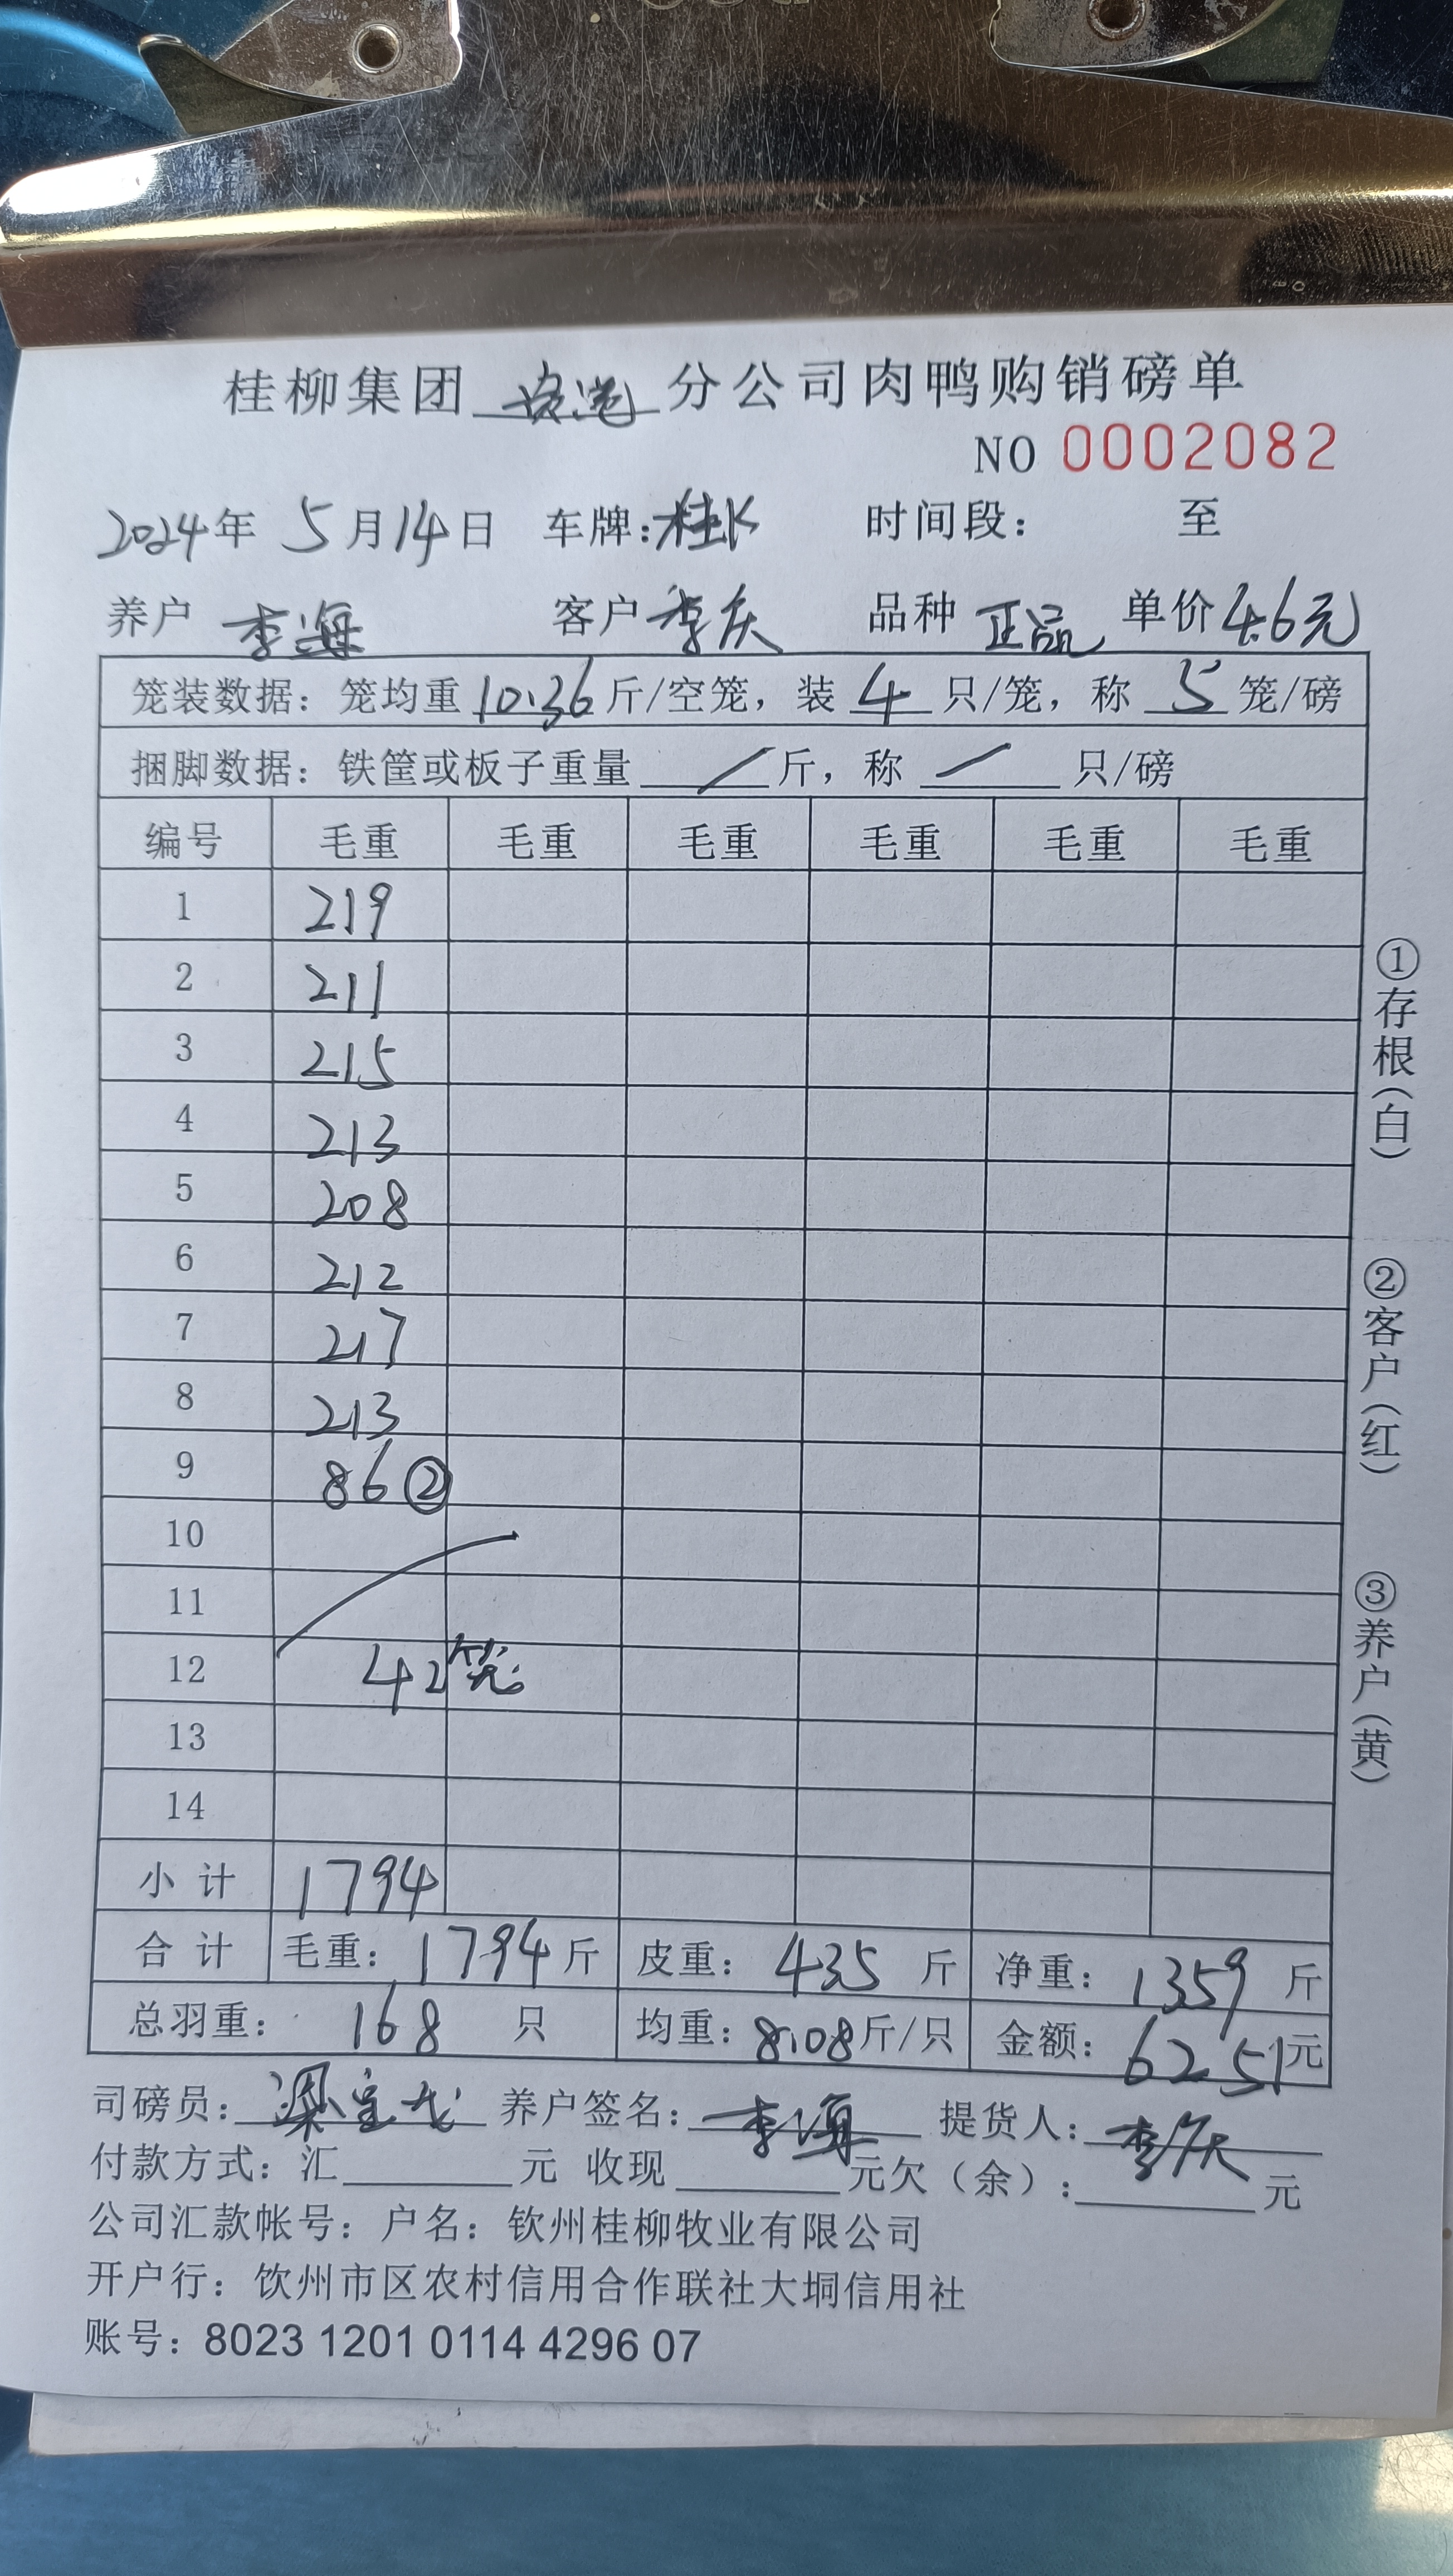 桂柳集团 分公司肉鸭购销磅单
NO 0002082
2024年 5月14日 车牌:桂K 时间段: 至
养户 李海 客户 李庆 品种 正品 单价 4.6元
笼装数据: 笼均重 10.36 斤/空笼, 装 4 只/笼, 称 5 笼/磅
捆脚数据: 铁筐或板子重量 / 斤, 称 / 只/磅
编号 毛重 毛重 毛重 毛重 毛重 毛重
1 219
2 211
3 215
4 213
5 208
6 212
7 217
8 213
9 86 ②
10
11
12 42笼
13
14
小计 1794
合计 毛重: 1794 斤 皮重: 435 斤 净重: 1359 斤
总羽重: 168 只 均重: 8.08斤/只 金额: 6251元
司磅员: 养户签名: 李海 提货人: 李庆
付款方式: 汇 元 收现 元欠(余): 元
公司汇款帐号: 户名: 钦州桂柳牧业有限公司
开户行: 饮州市区农村信用合作联社大垌信用社
账号: 8023 1201 0114 4296 07
①存根(白)
②客户(红)
③养户(黄)